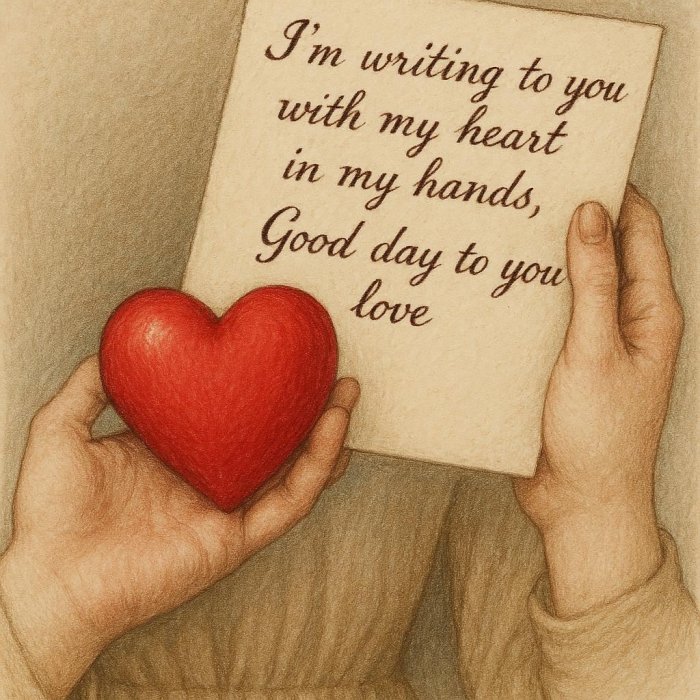 I'm writing to you
with my heart
in my hands,
Good day to you
love